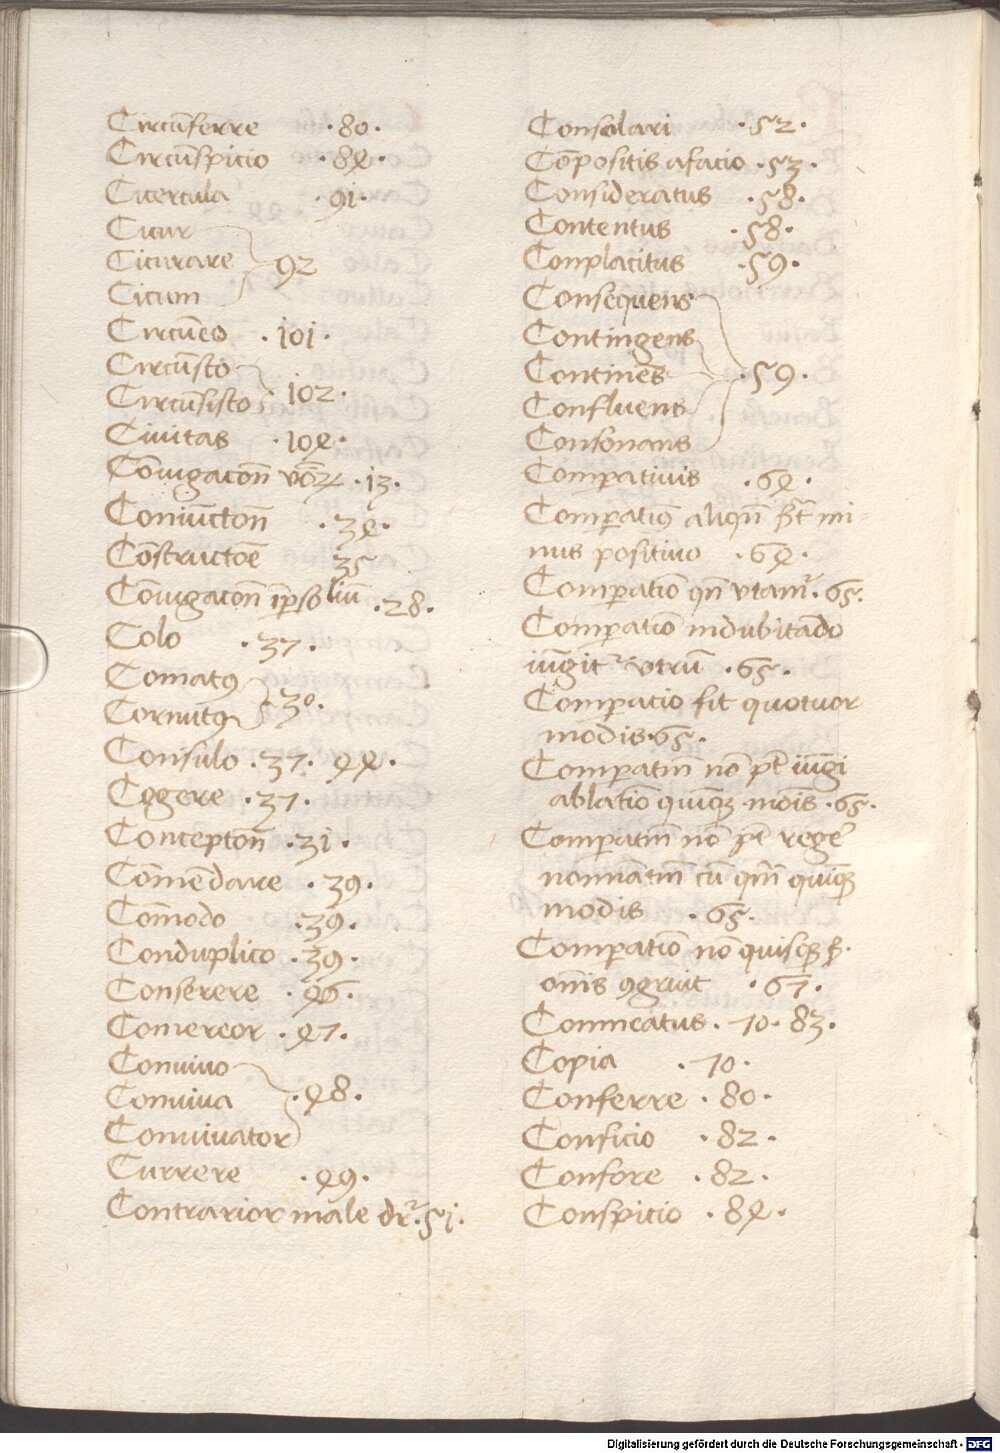 Circūferre ·80·
Circūspicio ·84·
Cicercula ·91·
Cicur
Cicurare 92
Cicum
Circūeo ·101·
Circūsto
Circūsisto 102·
Ciuitas ·104·
Cōiugacōn ·13·
Coniūctōn ·34·
Cōstructōe 35
Cōiugacōn īpersoliū ·28·
Colo ·37·
Comatꝯ
Cornutꝯ 30·
Consulo ·37· 44·
Cogere ·37·
Conceptōn ·31·
Cōmēdare ·39·
Cōmodo ·39·
Conduplico ·39·
Conserere ·46·
Comereor ·47·
Conuiuo
Conuiua ·48·
Conuiuator
Currere ·49·
Contrarior male dr̄ ·51·
Consolari ·52·
Cōpositis a facio ·53·
Consideratus ·58·
Contentus ·58·
Conplacitus ·59·
Consequens
Contingens
Continēs ·59·
Confluens
Consonans
Comparatiuis ·64·
mi-
nus positiuo ·64·
Comparatio qn̄ vtamur ·65·
Comparatio indubitādo
iūgitur vtrū ·65·
Comparacio fit quotuor
modis ·65·
Comparatiū nō pt̄ iūgi
ablatio quīqꝫ modis ·65·
Comparatiū nō pt̄ regē
nominatiū cū quīqꝫ
modis ·65·
Comparatio nō quisqꝫ
omīs ꝯgruit ·67·
Conmeatus ·70· 83·
Copia ·70·
Conferre ·80·
Conficio ·82·
Confore ·82·
Conspicio ·84·
Digitalisierung gefördert durch die Deutsche Forschungsgemeinschaft - DFG